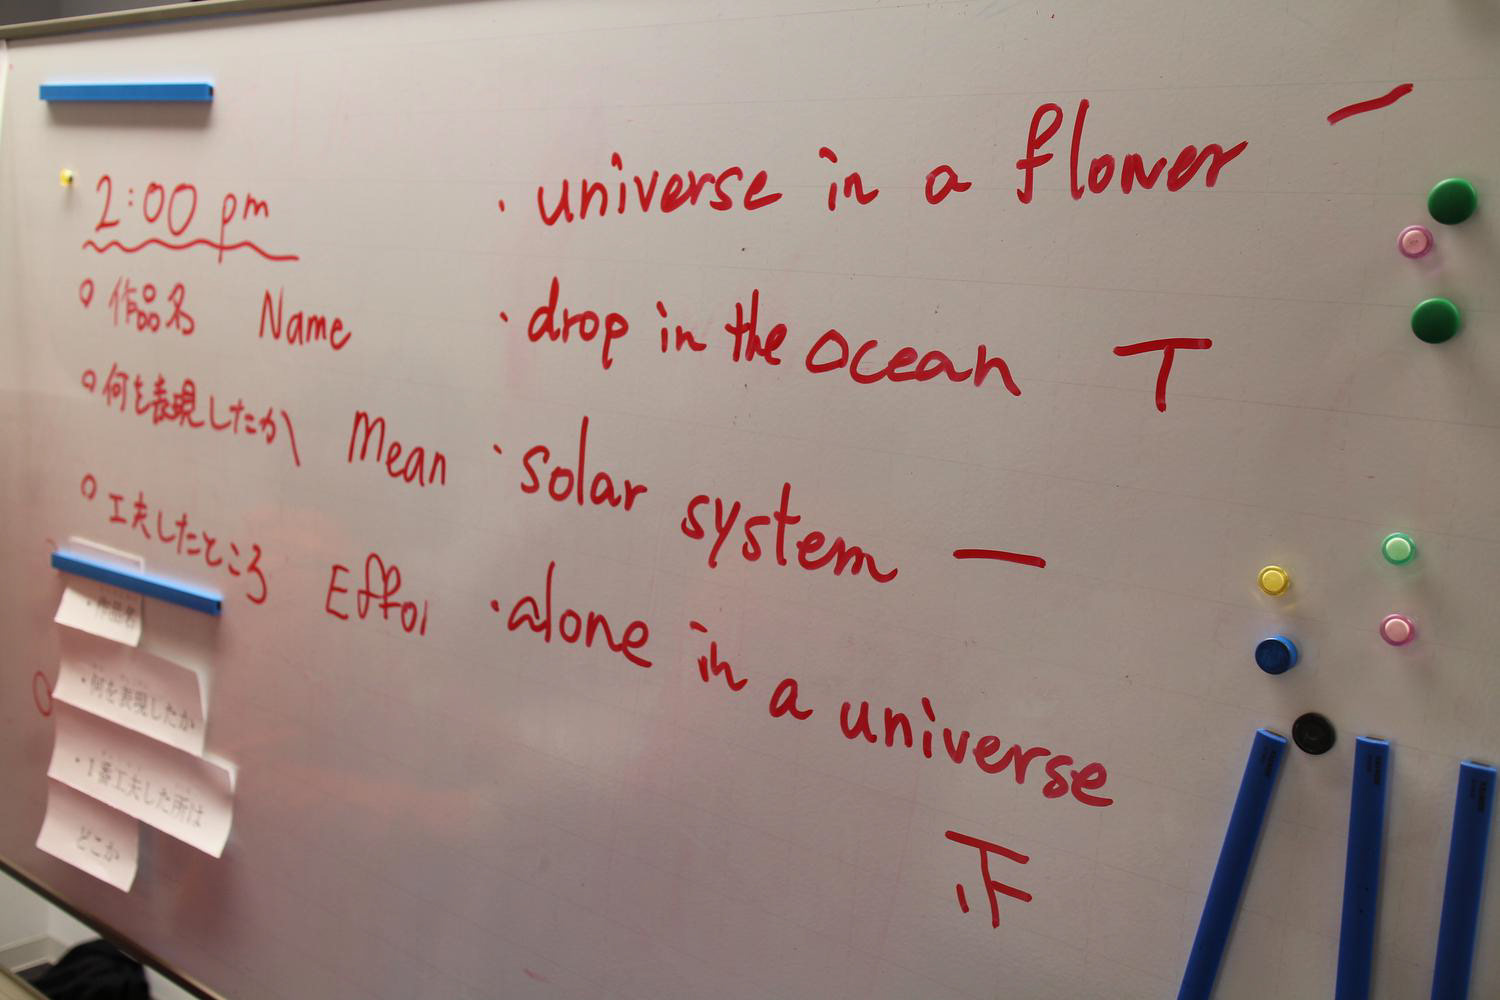 2:00 pm
○ 作品名 Name
○ 何を表現したか Mean
○ 工夫したところ Effor
・作品名
・何を表現したか
・1番工夫した所は
どこか
· universe in a flower 一
· drop in the ocean T
· solar system 一
· alone in a universe
正